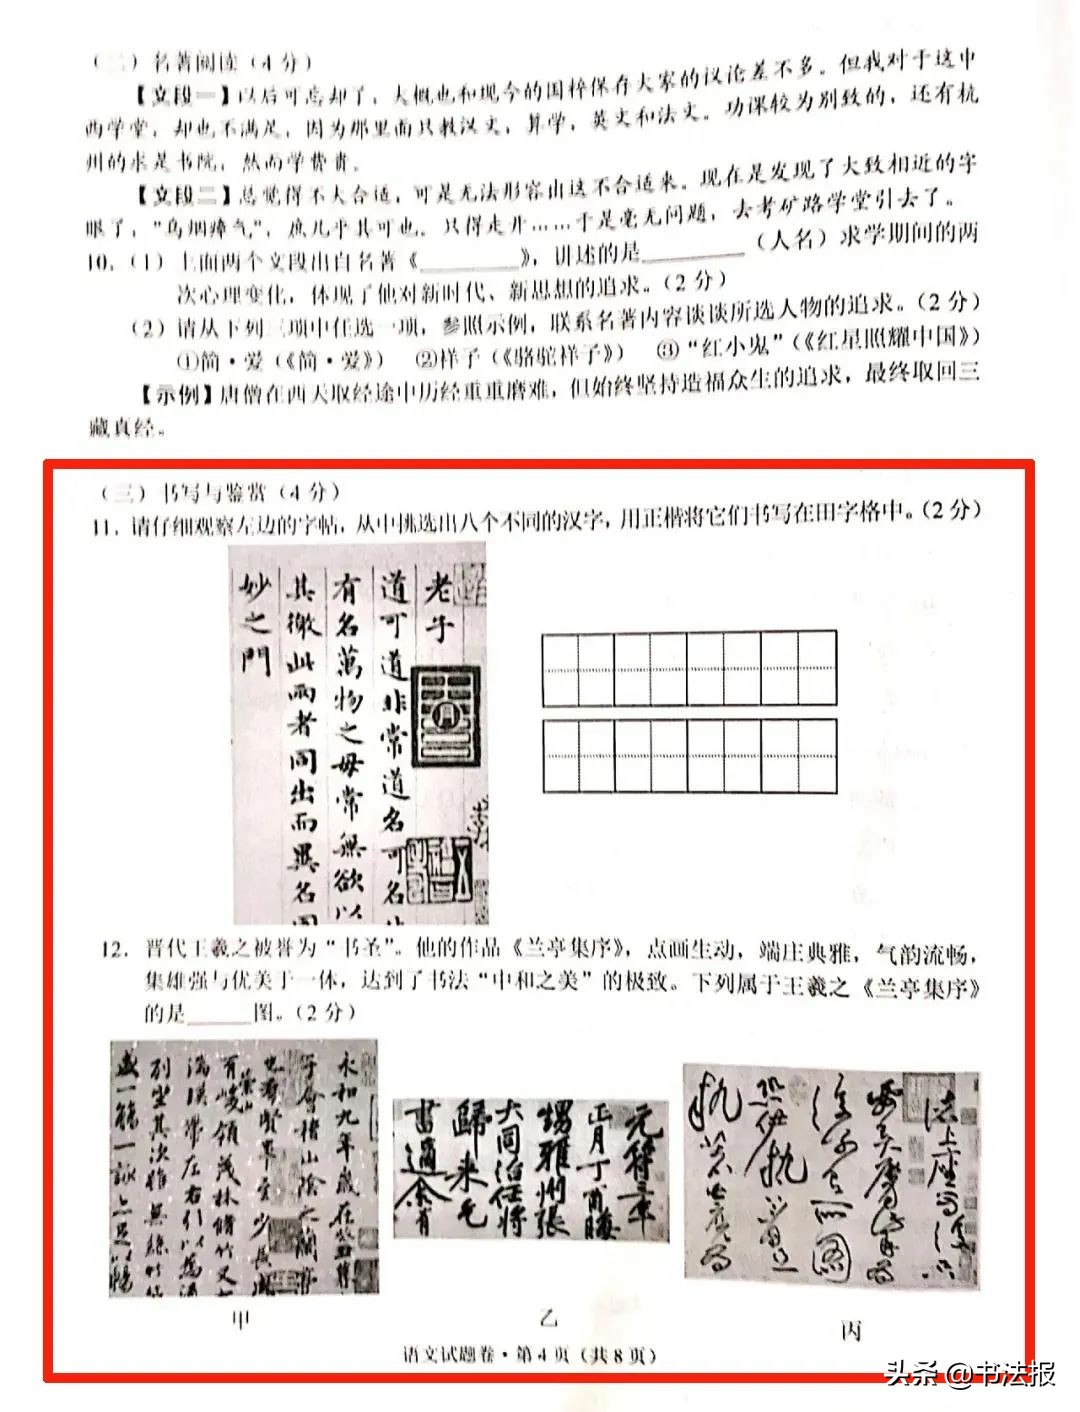 （二）名著阅读（4分）
【文段一】以后可忘却了，大概也和现今的国粹保存大家的议论差不多。但我对于这中
西学堂，却也不满足，因为那里面只教汉文，算学，英文和法文。功课较为别致的，还有杭
州的求是书院，然而学费贵。
【文段二】总觉得不大合适，可是无法形容出这不合适来。现在是发现了大致相近的字
眼了，"乌烟瘴气"，庶几乎其可也。只得走开……于是毫无问题，去考矿路学堂引去了。
10.（1）上面两个文段出自名著《________》，讲述的是________（人名）求学期间的两
次心理变化，体现了他对新时代、新思想的追求。（2分）
（2）请从下列三项中任选一项，参照示例，联系名著内容谈谈所选人物的追求。（2分）
①简·爱（《简·爱》） ②样子（《骆驼祥子》） ③"红小鬼"（《红星照耀中国》）
【示例】唐僧在西天取经途中历经重重磨难，但始终坚持造福众生的追求，最终取回三
藏真经。
（三）书写与鉴赏（4分）
11.请仔细观察左边的字帖，从中挑选出八个不同的汉字，用正楷将它们书写在田字格中。（2分）
老子
道可道非常道名可名
有名萬物之母常無欲以
其徼此兩者同出而異名同
妙之門
12.晋代王羲之被誉为"书圣"。他的作品《兰亭集序》，点画生动，端庄典雅，气韵流畅，
集雄强与优美于一体，达到了书法"中和之美"的极致。下列属于王羲之《兰亭集序》
的是____图。（2分）
永和九年歲在癸丑暮
于會稽山陰之蘭亭
群賢畢至少長咸
有峻領茂林脩竹又
清流激湍
列坐其次雖無絲竹管
盛一觴一詠亦足以暢
甲
元符三年
正月丁酉晦
甥雅州張
大同治任將
歸來乞
書適余有
乙
丙
语文试题卷·第4页（共8页）
头条 @书法报